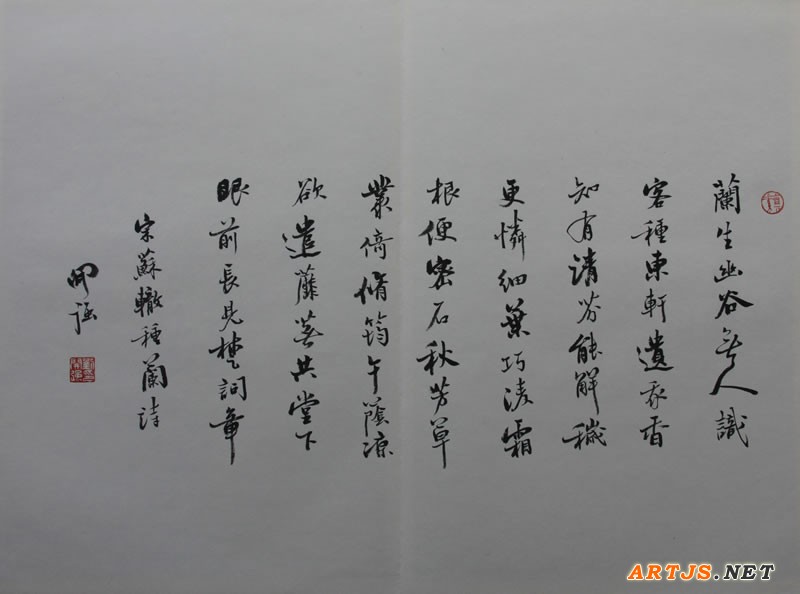 蘭生幽谷無人識
客種東軒遺我香
知有清芬能解穢
更憐細葉巧凌霜
根便密石秋芳草
叢倚脩筠午蔭涼
欲遣蘼蕪共堂下
眼前長見楚詞章
宋蘇轍種蘭詩
ARTJS.NET